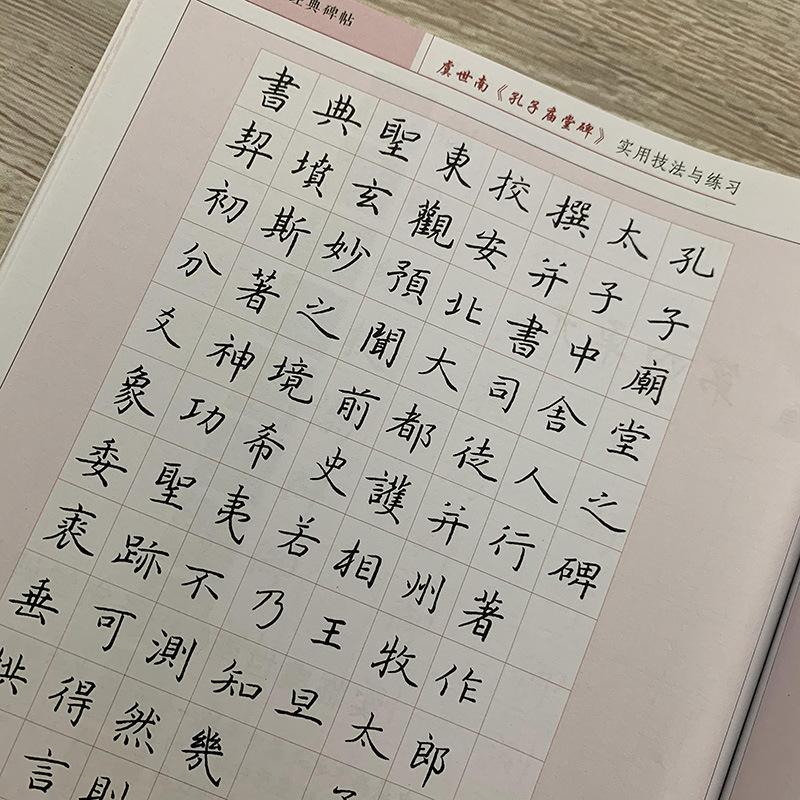 经典碑帖
虞世南《孔子庙堂碑》实用技法与练习
孔子廟堂之碑
太子中舍人行著作郎
撰并書司徒并州牧太子
校安北大都護相王旦
東觀預聞前史若乃知幾
聖玄妙之境希夷不測然則
典墳斯著神功聖跡可得言
書契初分爻象委裘垂拱